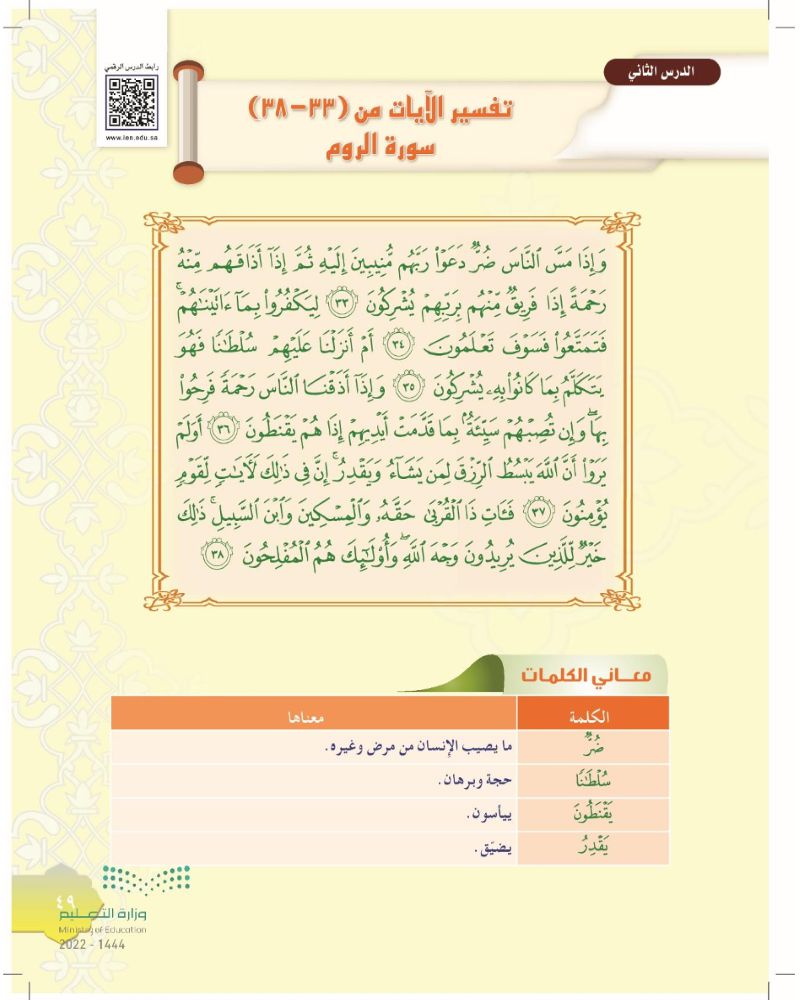 رابط الدرس الرقمي
www.ien.edu.sa
الدرس الثاني
تفسير الآيات من (٣٣-٣٨)
سورة الروم
وَإِذَا مَسَّ ٱلنَّاسَ ضُرٌّ دَعَوْا۟ رَبَّهُم مُّنِيبِينَ إِلَيْهِ ثُمَّ إِذَآ أَذَاقَهُم مِّنْهُ
رَحْمَةً إِذَا فَرِيقٌ مِّنْهُم بِرَبِّهِمْ يُشْرِكُونَ ٣٣ لِيَكْفُرُوا۟ بِمَآ ءَاتَيْنَٰهُمْ ۚ
فَتَمَتَّعُوا۟ فَسَوْفَ تَعْلَمُونَ ٣٤ أَمْ أَنزَلْنَا عَلَيْهِمْ سُلْطَٰنًا فَهُوَ
يَتَكَلَّمُ بِمَا كَانُوا۟ بِهِۦ يُشْرِكُونَ ٣٥ وَإِذَآ أَذَقْنَا ٱلنَّاسَ رَحْمَةً فَرِحُوا۟
بِهَا ۖ وَإِن تُصِبْهُمْ سَيِّئَةٌۢ بِمَا قَدَّمَتْ أَيْدِيهِمْ إِذَا هُمْ يَقْنَطُونَ ٣٦ أَوَلَمْ
يَرَوْا۟ أَنَّ ٱللَّهَ يَبْسُطُ ٱلرِّزْقَ لِمَن يَشَآءُ وَيَقْدِرُ ۚ إِنَّ فِى ذَٰلِكَ لَءَايَٰتٍ لِّقَوْمٍ
يُؤْمِنُونَ ٣٧ فَـَٔاتِ ذَا ٱلْقُرْبَىٰ حَقَّهُۥ وَٱلْمِسْكِينَ وَٱبْنَ ٱلسَّبِيلِ ۚ ذَٰلِكَ
خَيْرٌ لِّلَّذِينَ يُرِيدُونَ وَجْهَ ٱللَّهِ ۖ وَأُو۟لَٰٓئِكَ هُمُ ٱلْمُفْلِحُونَ ٣٨
معـاني الكلمات
الكلمة معناها
ضُرٌّ ما يصيب الإنسان من مرض وغيره.
سُلْطَٰنًا حجة وبرهان.
يَقْنَطُونَ ييأسون.
يَقْدِرُ يضيّق.
٤٩
وزارة التعـليم
Ministry of Education
2022 - 1444